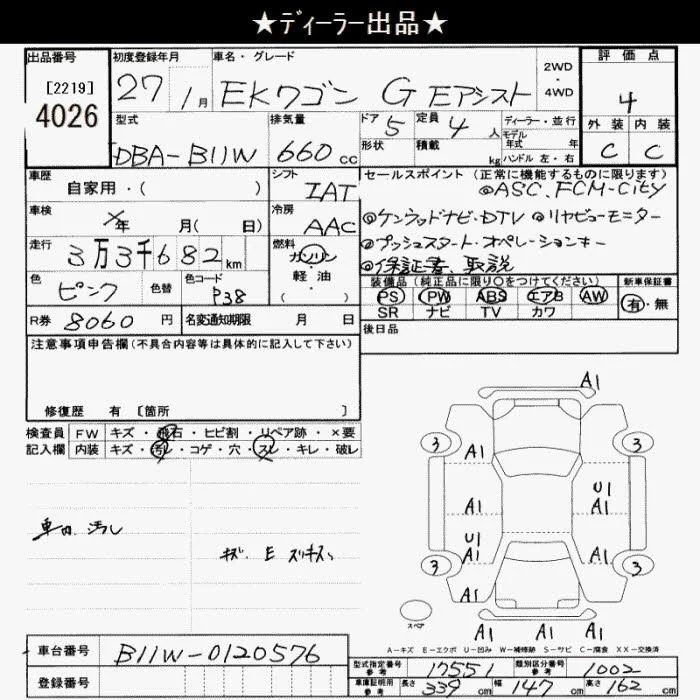 ★ディーラー出品★
出品番号
[2219]
4026
初度登録年月
27 1月
車名・グレード
EKワゴン G Eアシスト
2WD
・
4WD
評価点
4
外装 内装
C C
型式
DBA-B11W
排気量
660 cc
ドア 5
定員 4 人
形状
積載 kg
ディーラー・並行
モデル年式 年
ハンドル 左・右
車歴
自家用・( )
シフト
IAT
車検
年 月( 日)
冷房
AAC
走行
3万3千682km
燃料
ガソリン
軽・油
( )
色
ピンク
色替
色コード
P38
R券 8060 円
名変通知期限 月 日
セールスポイント (正常に機能するものに限ります)
◎ASC. FCM-City
◎ケンウッドナビ・DTV ◎リヤビューモニター
◎プッシュスタート・オペレーションキー
◎保証書、取説
装備品 (純正品に限り○をつけてください)
PS PW ABS エアB AW
SR ナビ TV カワ
新車保証書
有・無
後日品
注意事項申告欄(不具合内容等は具体的に記入して下さい)
修復歴 有 [箇所 ]
検査員記入欄
FW キズ・飛石・ヒビ割・リペア跡・×要
内装 キズ・汚レ・コゲ・穴・スレ・キレ・破レ
車内 汚れ
キズ. E スリキズ
A1
3 3
A1
U1
A1 A1
U1
A1 A1
3 3
A1
A1 A1 A1
スペア
A-キズ E-エクボ U-凹み W-補修跡 S-サビ C-腐食 XX-交換済
車台番号 B11W-0120576
登録番号
型式指定番号 参考 17551
類別区分番号 参考 1002
車庫証明用 参考 長さ 339 cm 幅 147 cm 高さ 162 cm